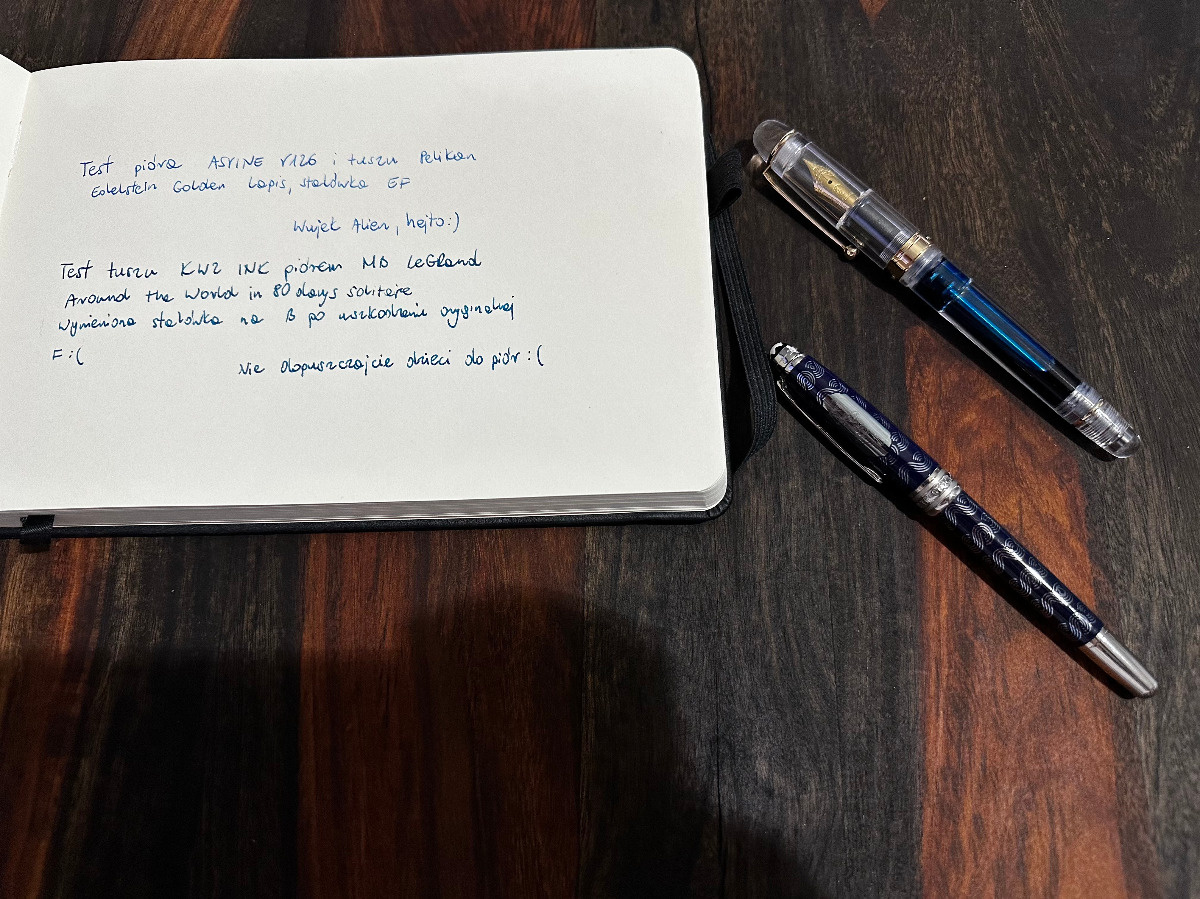 Test pióra ASVINE V126 i tuszu Pelikan
Edelstein Golden Lapis, stalówka EF
Wujek Alien, hejto:)
Test tuszu KWZ INK piórem MB LeGrand
Around the World in 80 days solitaire
Wymieniona stalówka na B po uszkodzeniu oryginalnej
F :(
Nie dopuszczajcie dzieci do piór :(